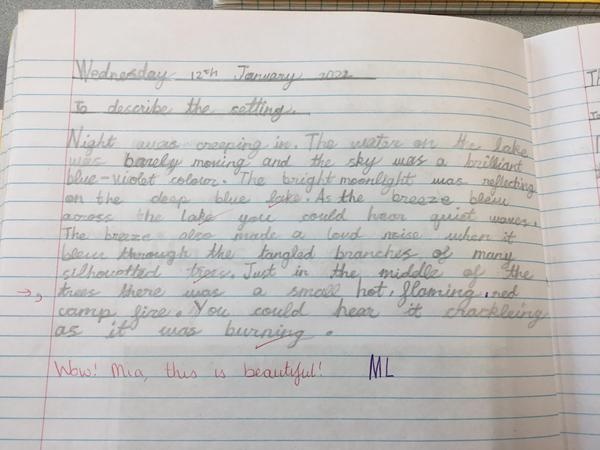 Wednesday 12th January 2022
To describe the setting.
Night was creeping in. The water on the lake
was barely moving and the sky was a brilliant
blue-violet colour. The bright moonlight was reflecting
on the deep blue lake. As the breeze blew
across the lake you could hear quiet waves.
The breeze also made a loud noise when it
blew through the tangled branches of many
silhouetted trees. Just in the middle of the
trees there was a small hot, flaming, red
camp fire. You could hear it charkleing
as it was burning.
Wow! Mia, this is beautiful! ML